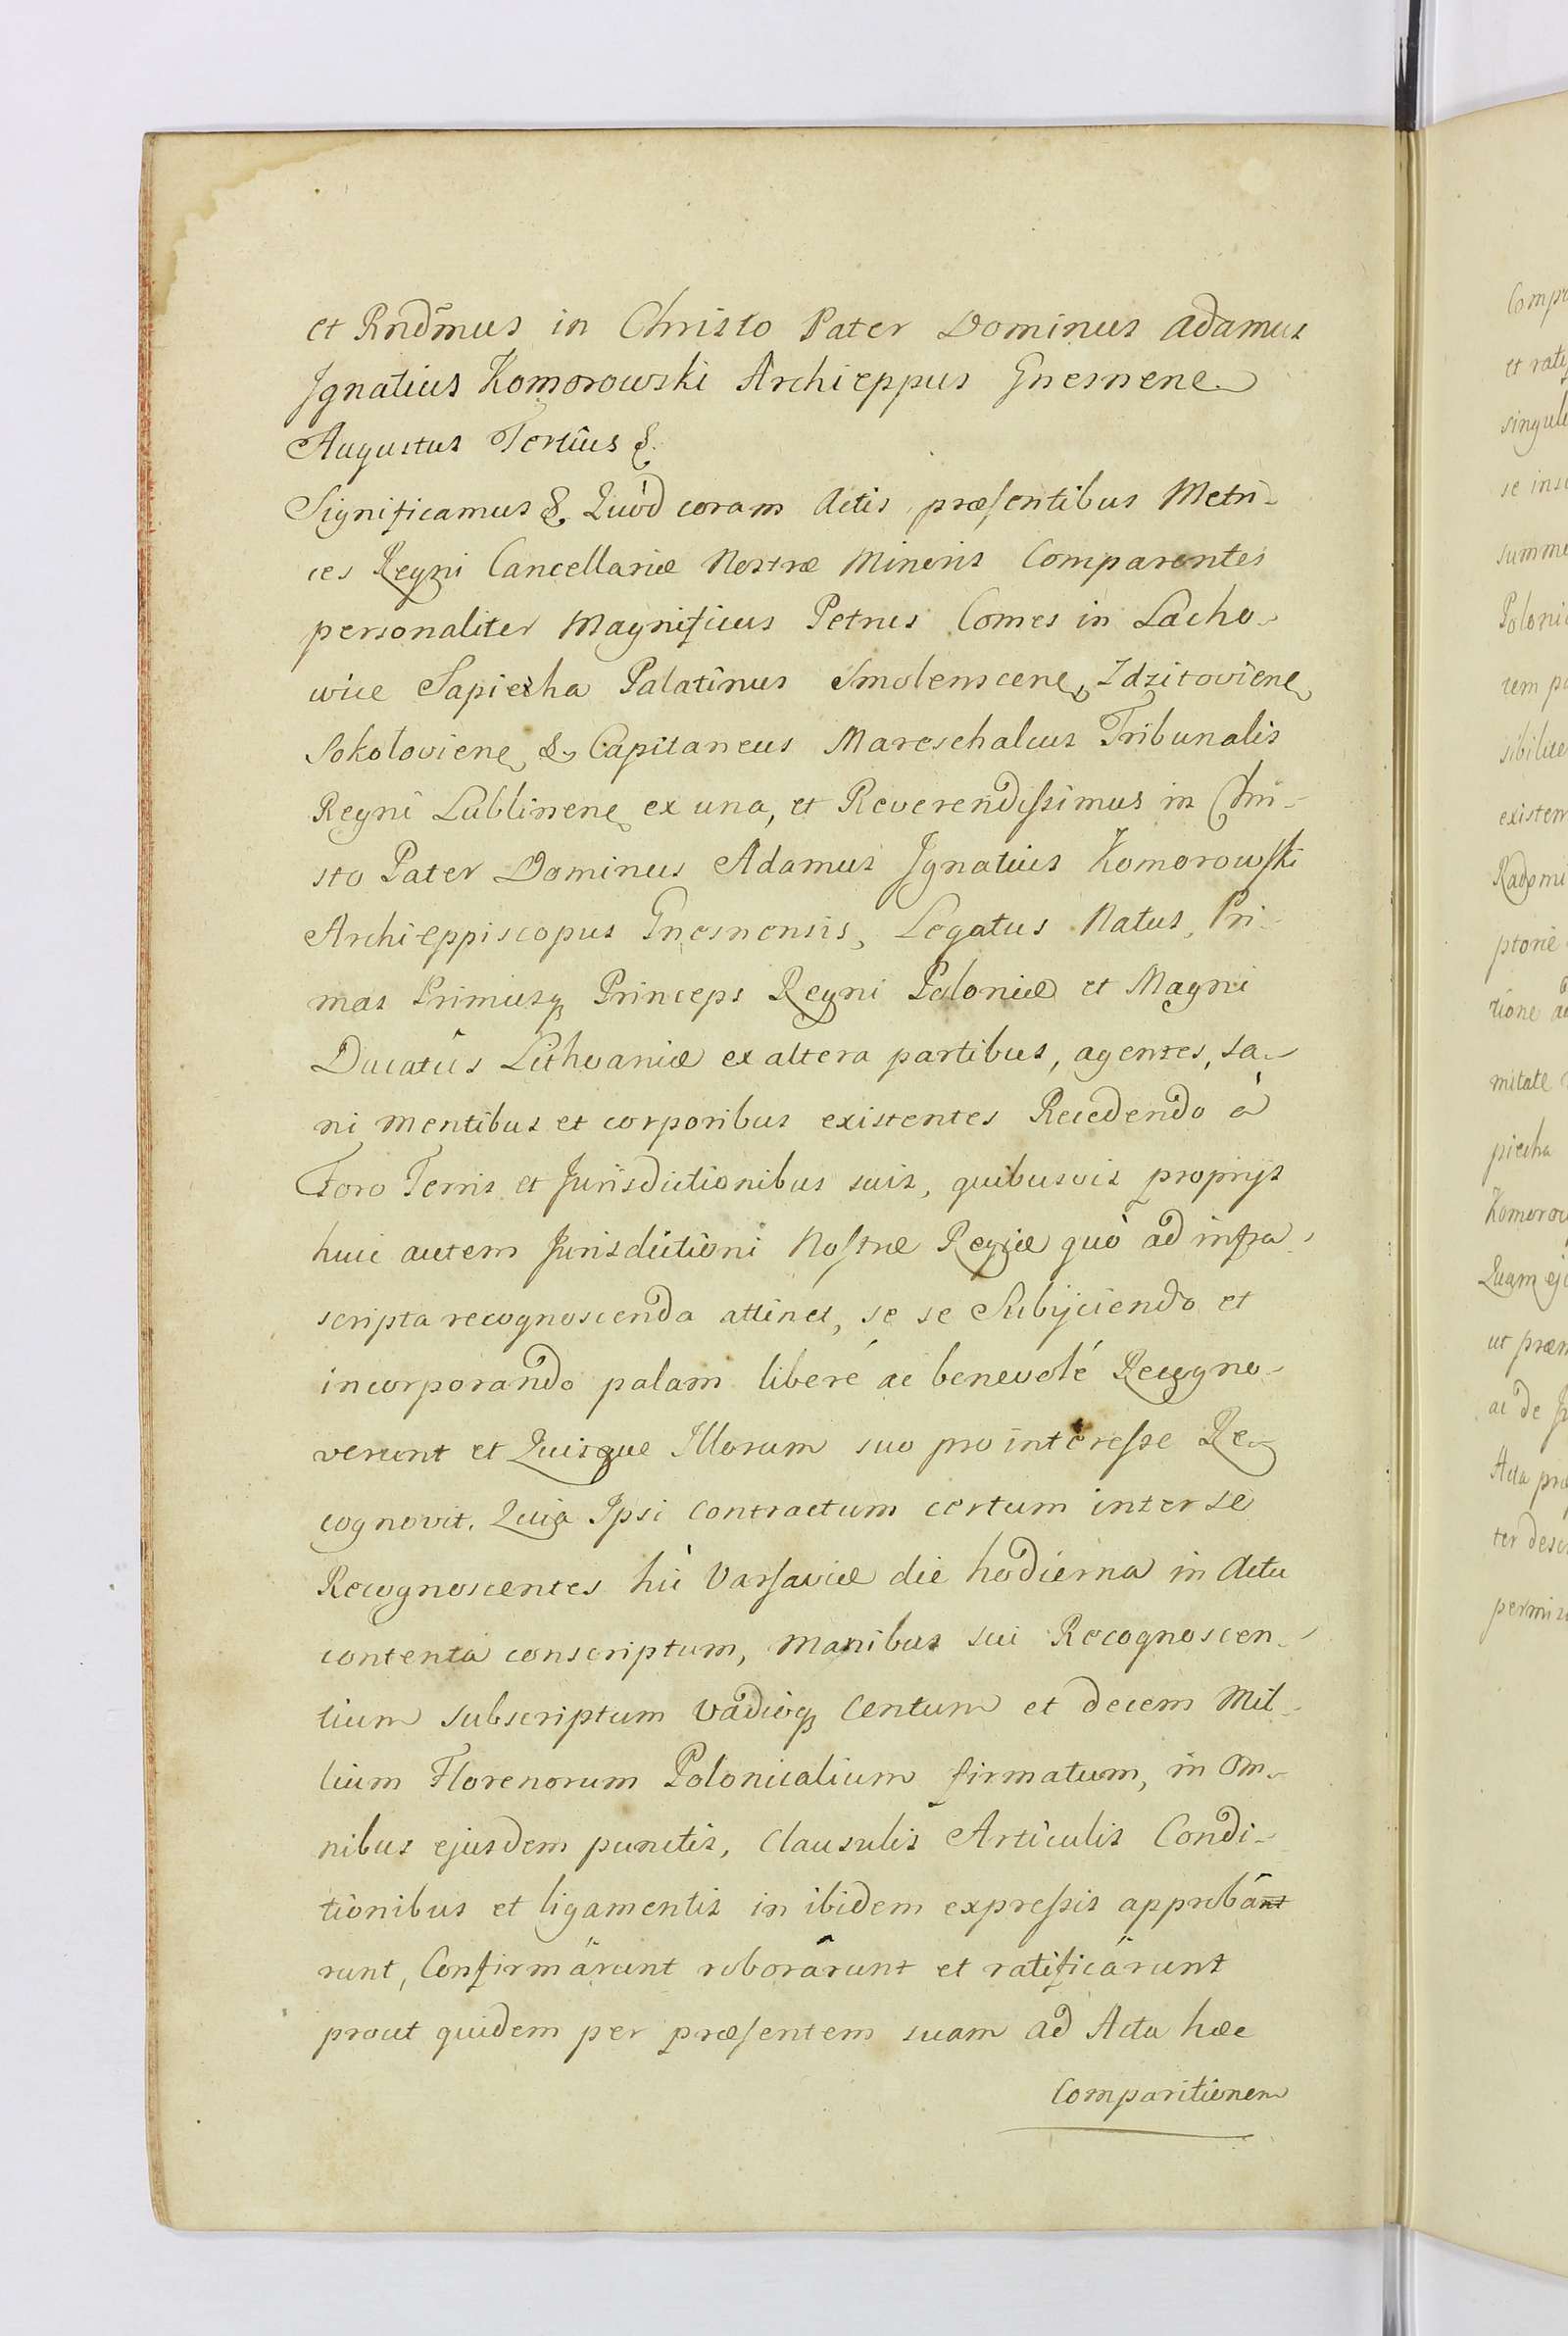 et Rndm̃us in Christo Pater Dominus Adamus
Ignatius Komorowski Archieppus Gnesnene
Augustus Tertius &.
Significamus &. Quòd coram Actis præsentibus Metri-
ces Regni Cancellariæ Nostræ Minoris Comparentes
personaliter Magnificus Petrus Comes in Lacho-
wice Sapieha Palatinus Smolenscene, Zdzitoviene
Sokoloviene &. Capitaneus Mareschalcus Tribunalis
Regni Lublinene ex una, et Reverendissimus in Chri-
sto Pater Dominus Adamus Ignatius Komorowski
Archieppiscopus Gnesnensis, Legatus Natus, Pri-
mas Primusq Princeps Regni Poloniæ et Magni
Ducatûs Lithvaniæ ex altera partibus, agentes, sa-
ni mentibus et corporibus existentes Recedendo à
Foro Terris et Jurisdictionibus suis, quibusvis proprijs
huic autem Jurisdictioni Nostræ Regiæ quò ad infra-
scripta recognoscenda attinet, se se Subijciendo et
incorporando palam liberé ac benevolé Recogno-
verunt et Quisque Illorum suo pro interesse Re-
cognovit. Quia Ipsi contractum certum inter se
Recognoscentes hìc Varsaviæ die hodierna in Actu
contenta conscriptum, manibus sui Recognoscen-
tium subscriptum vadioq Centum et decem Mil-
lium Florenorum Polonicalium firmatum, in Om-
nibus ejusdem punctis, Clausulis Articulis Condi-
tionibus et ligamentis in ibidem expressis approbânt
runt, Confirmârunt roborârunt et ratificârunt
prout quidem per præsentem suam ad Acta hæc
Comparitionem